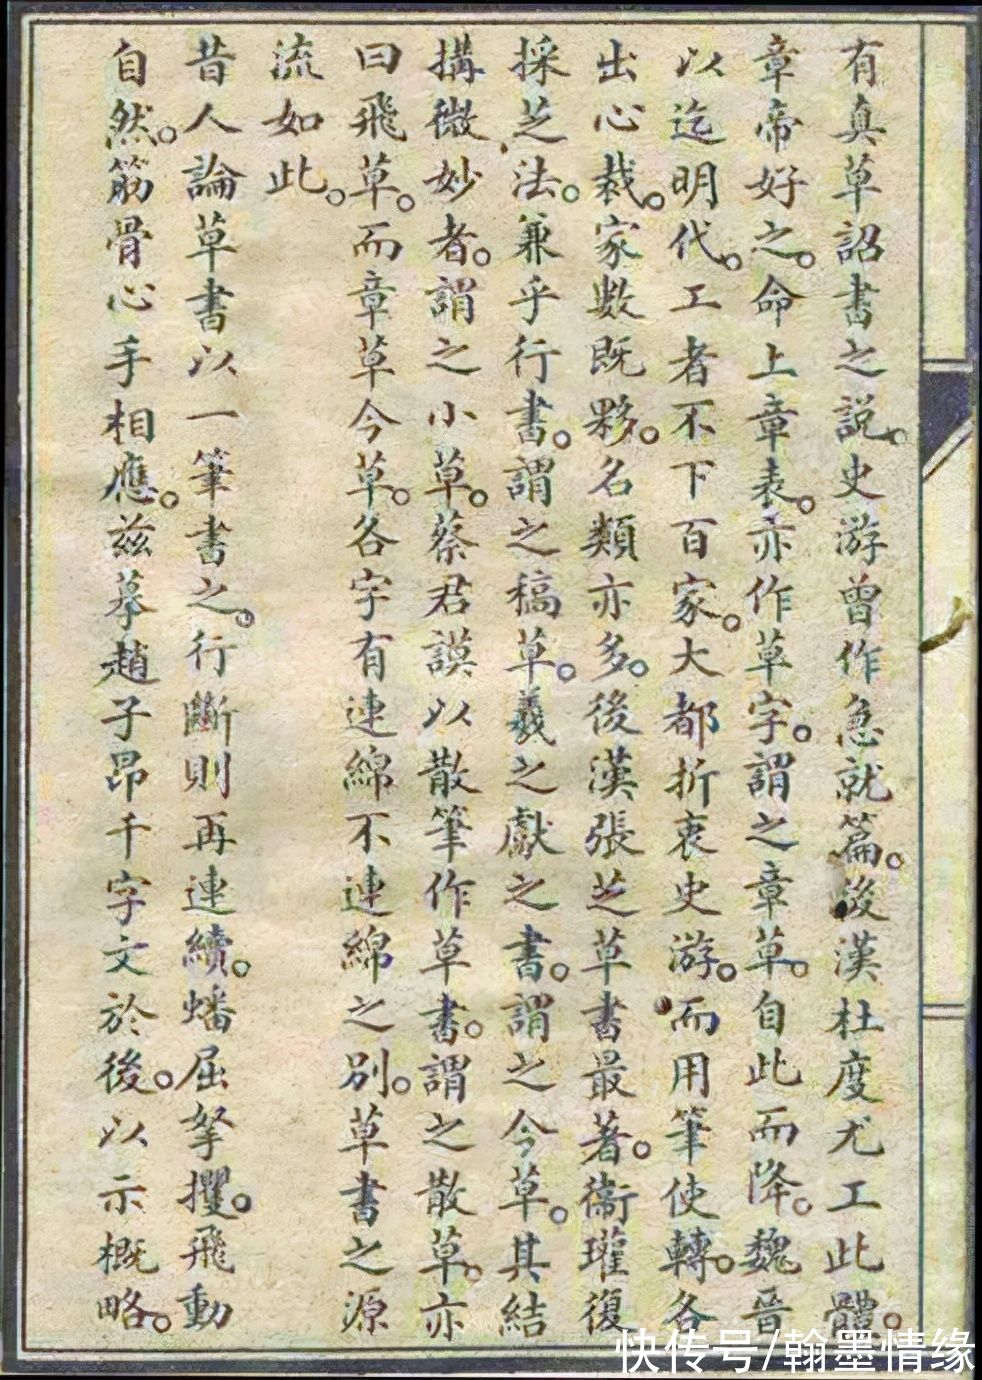 有真草詔書之說。史游曾作急就篇。後漢杜度尤工此體。
章帝好之。命上章表。亦作草字。謂之章草。自此而降。魏晉
以迄明代。工者不下百家。大都折衷史游。而用筆使轉。各
出心裁。家數既夥。名類亦多。後漢張芝草書最著。衞瓘復
採芝法。兼乎行書。謂之稿草。羲之獻之書。謂之今草。其結
搆微妙者。謂之小草。蔡君謨以散筆作草書。謂之散草。亦
曰飛草。而章草今草。各字有連綿不連綿之別。草書之源
流如此。
昔人論草書以一筆書之。行斷則再連續。蟠屈拏攫。飛動
自然。筋骨心手相應。茲摹趙子昂千字文於後。以示概略。
快传号/翰墨情缘